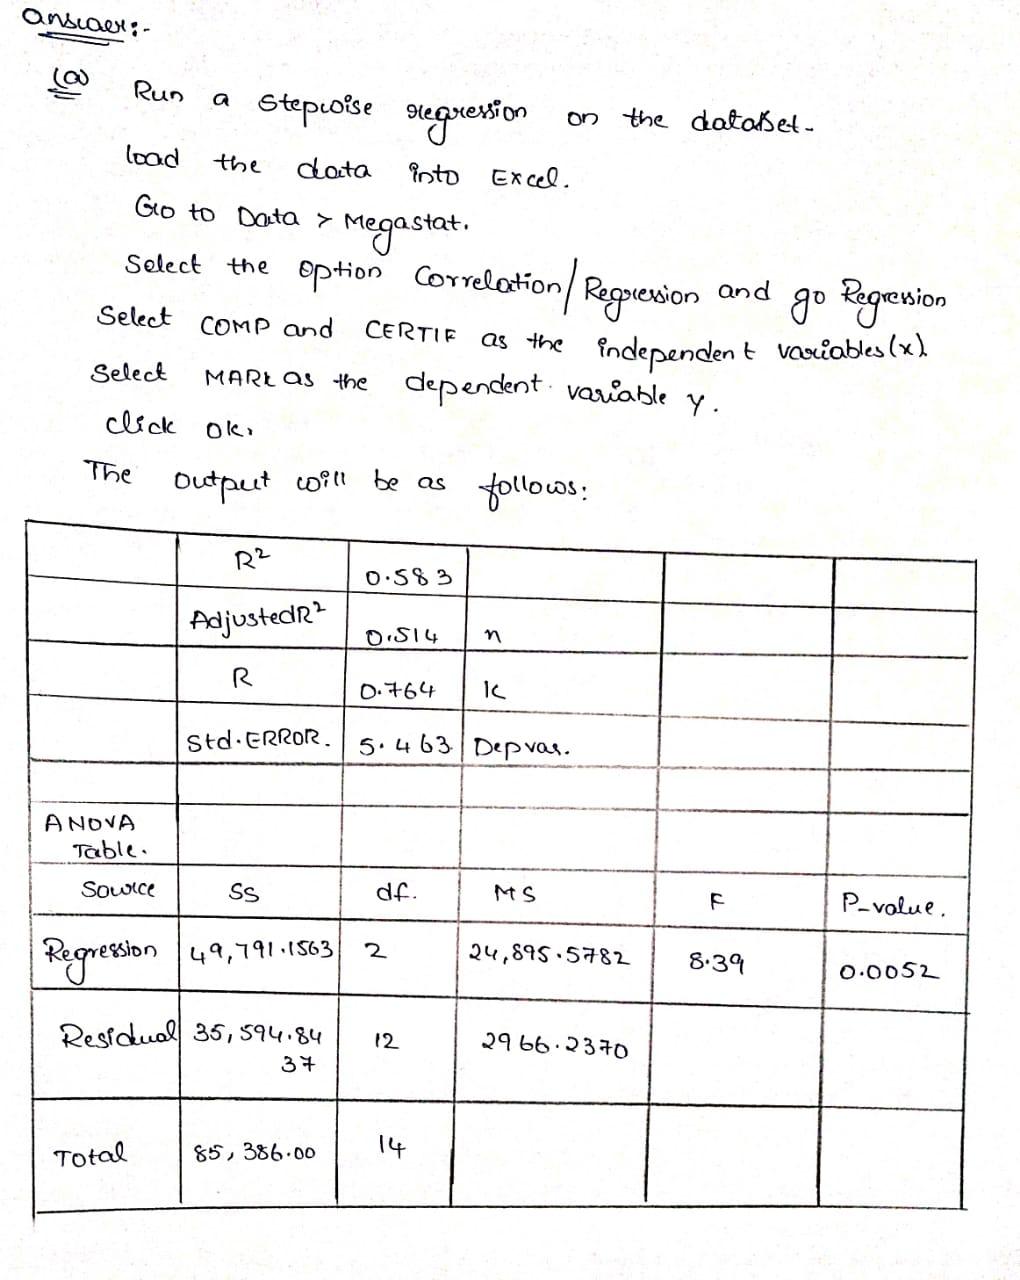 answer:-
(a) Run a stepwise regression on the dataset.
load the data into Excel.
Go to Data > Megastat.
Select the option Correlation/Regression and go Regression
Select COMP and CERTIF as the independent variables(x).
Select MARK as the dependent variable y.
click ok.
The output will be as follows:
R² 0.583
AdjustedR² 0.514 n
R 0.764 k
Std.ERROR. 5.463 Dep var.
ANOVA
Table.
Source SS df. MS F P-value.
Regression 49,791.1563 2 24,895.5782 8.39 0.0052
Residual 35,594.84 12 2966.2370
37
Total 85,386.00 14